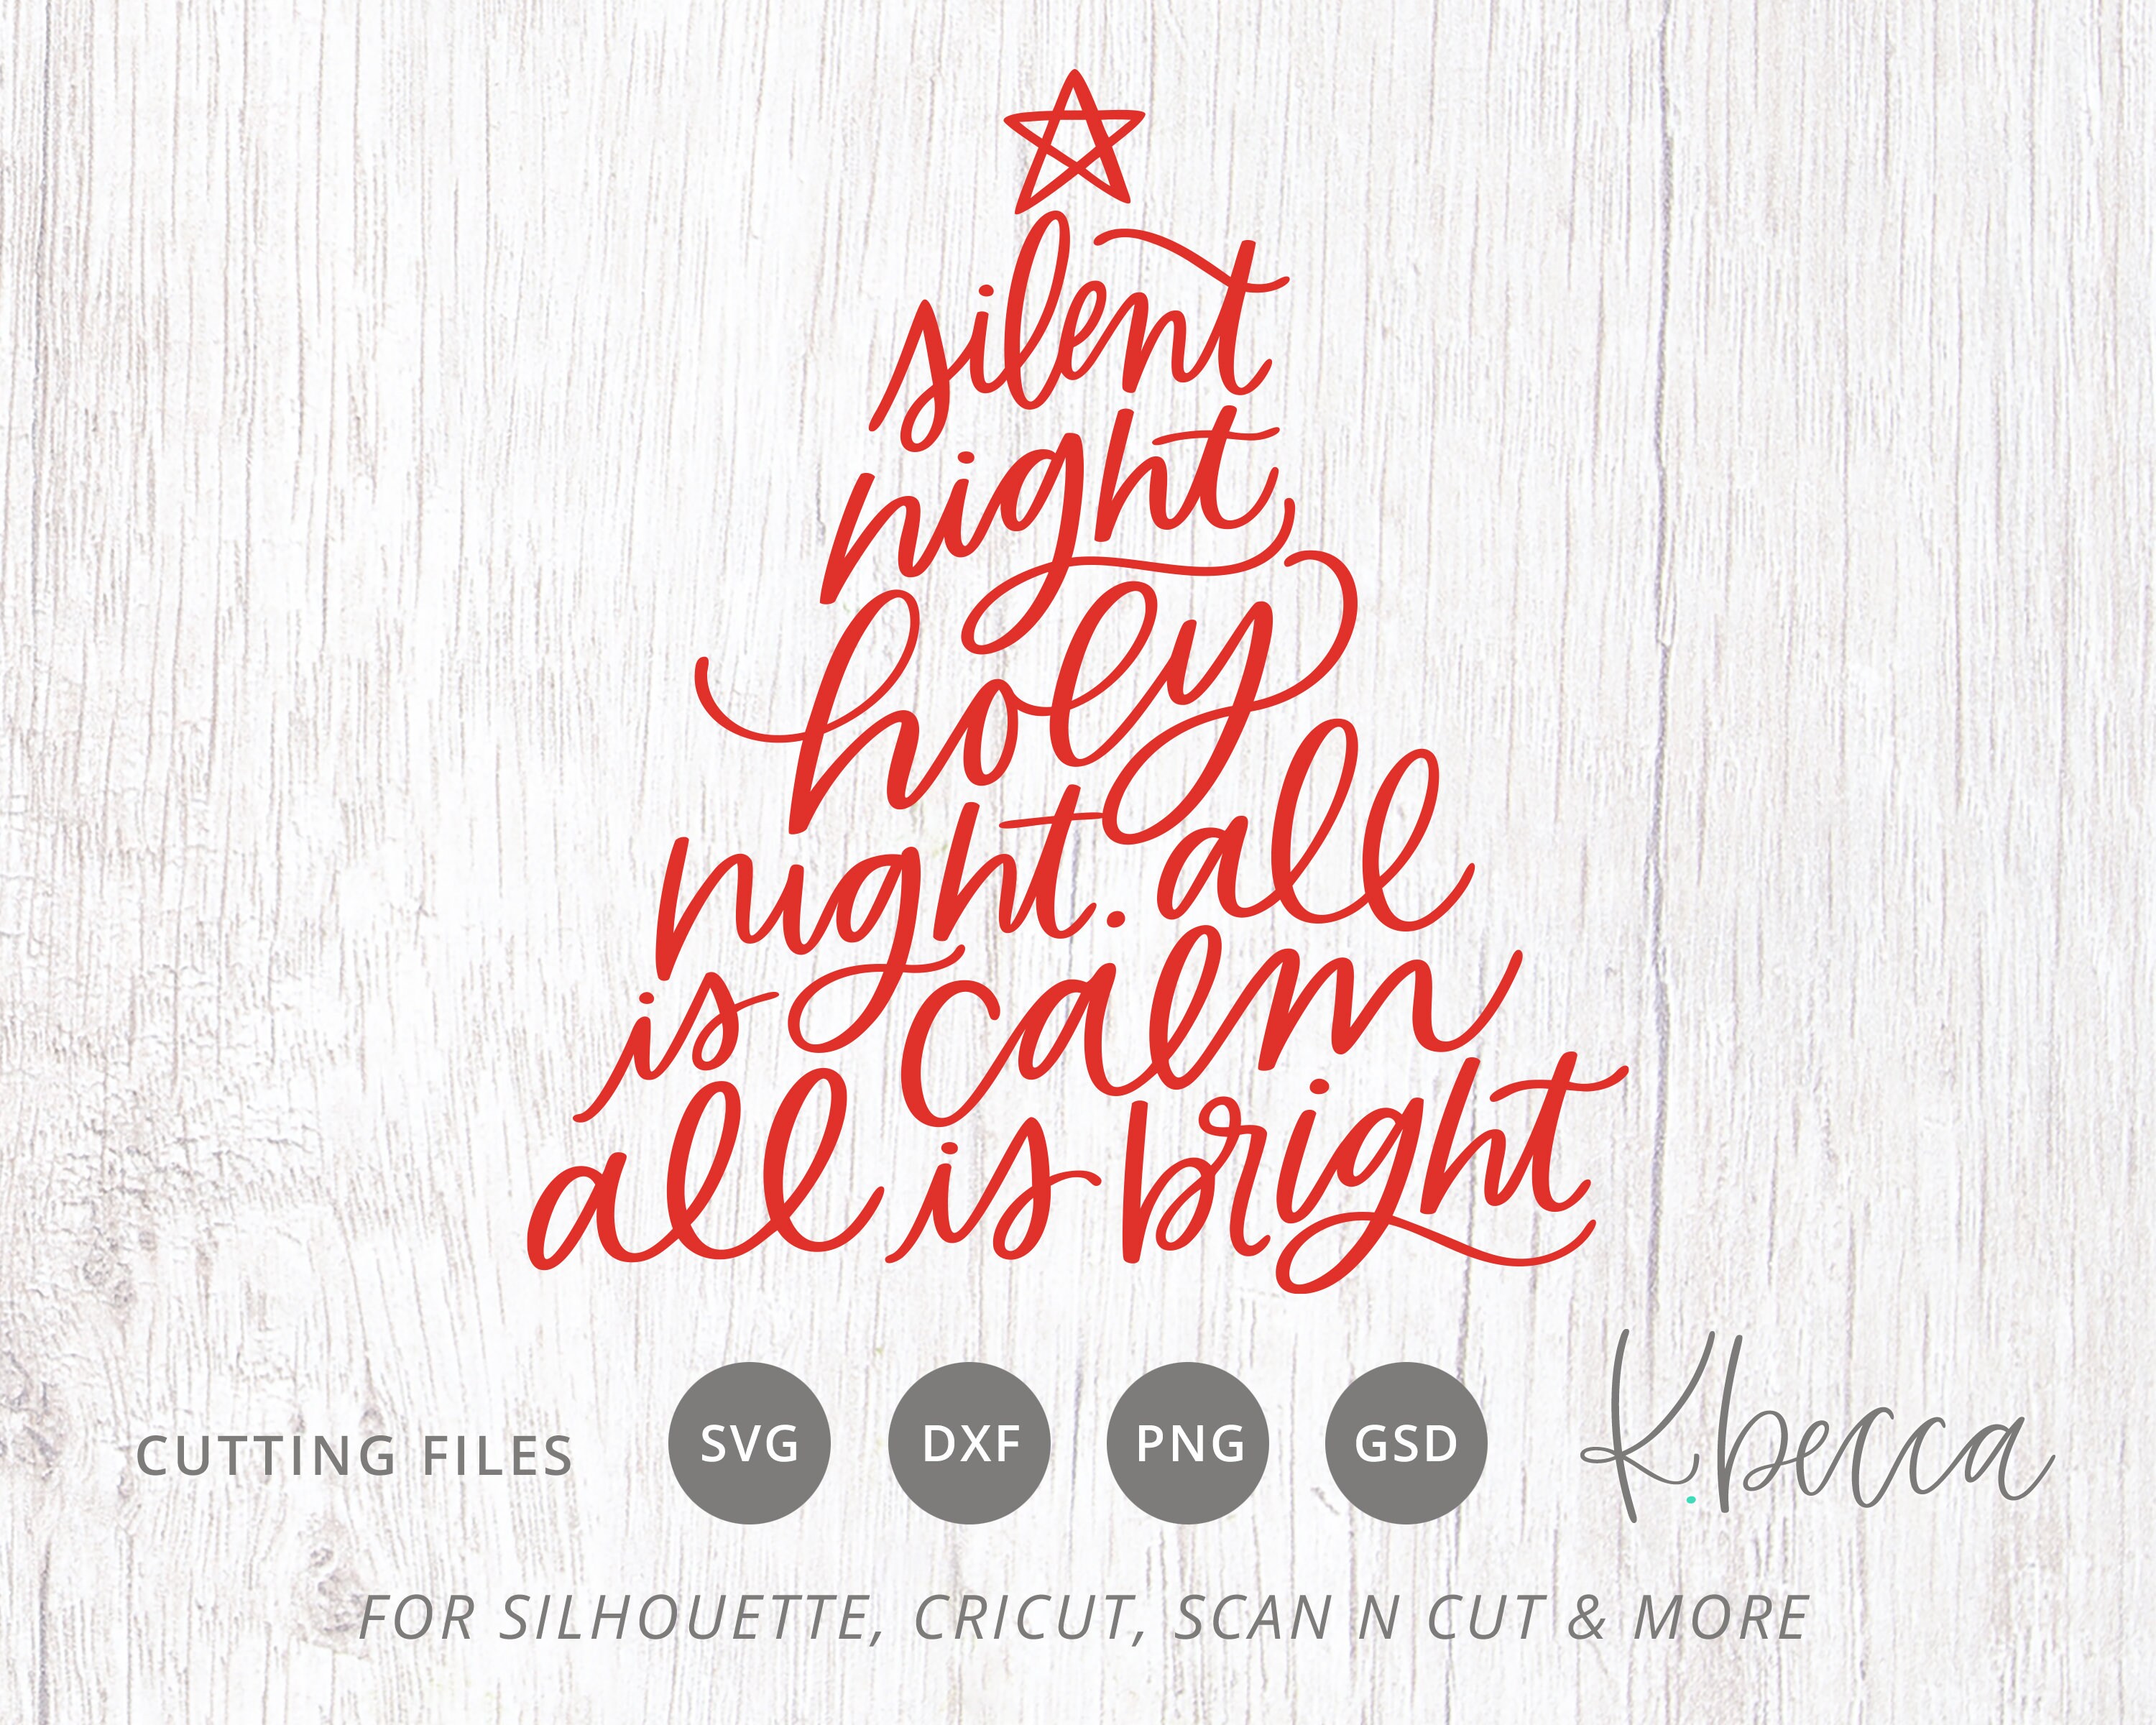 silent
night,
holy
night. all
is calm
all is bright
CUTTING FILES
SVG
DXF
PNG
GSD
K.becca
FOR SILHOUETTE, CRICUT, SCAN N CUT & MORE